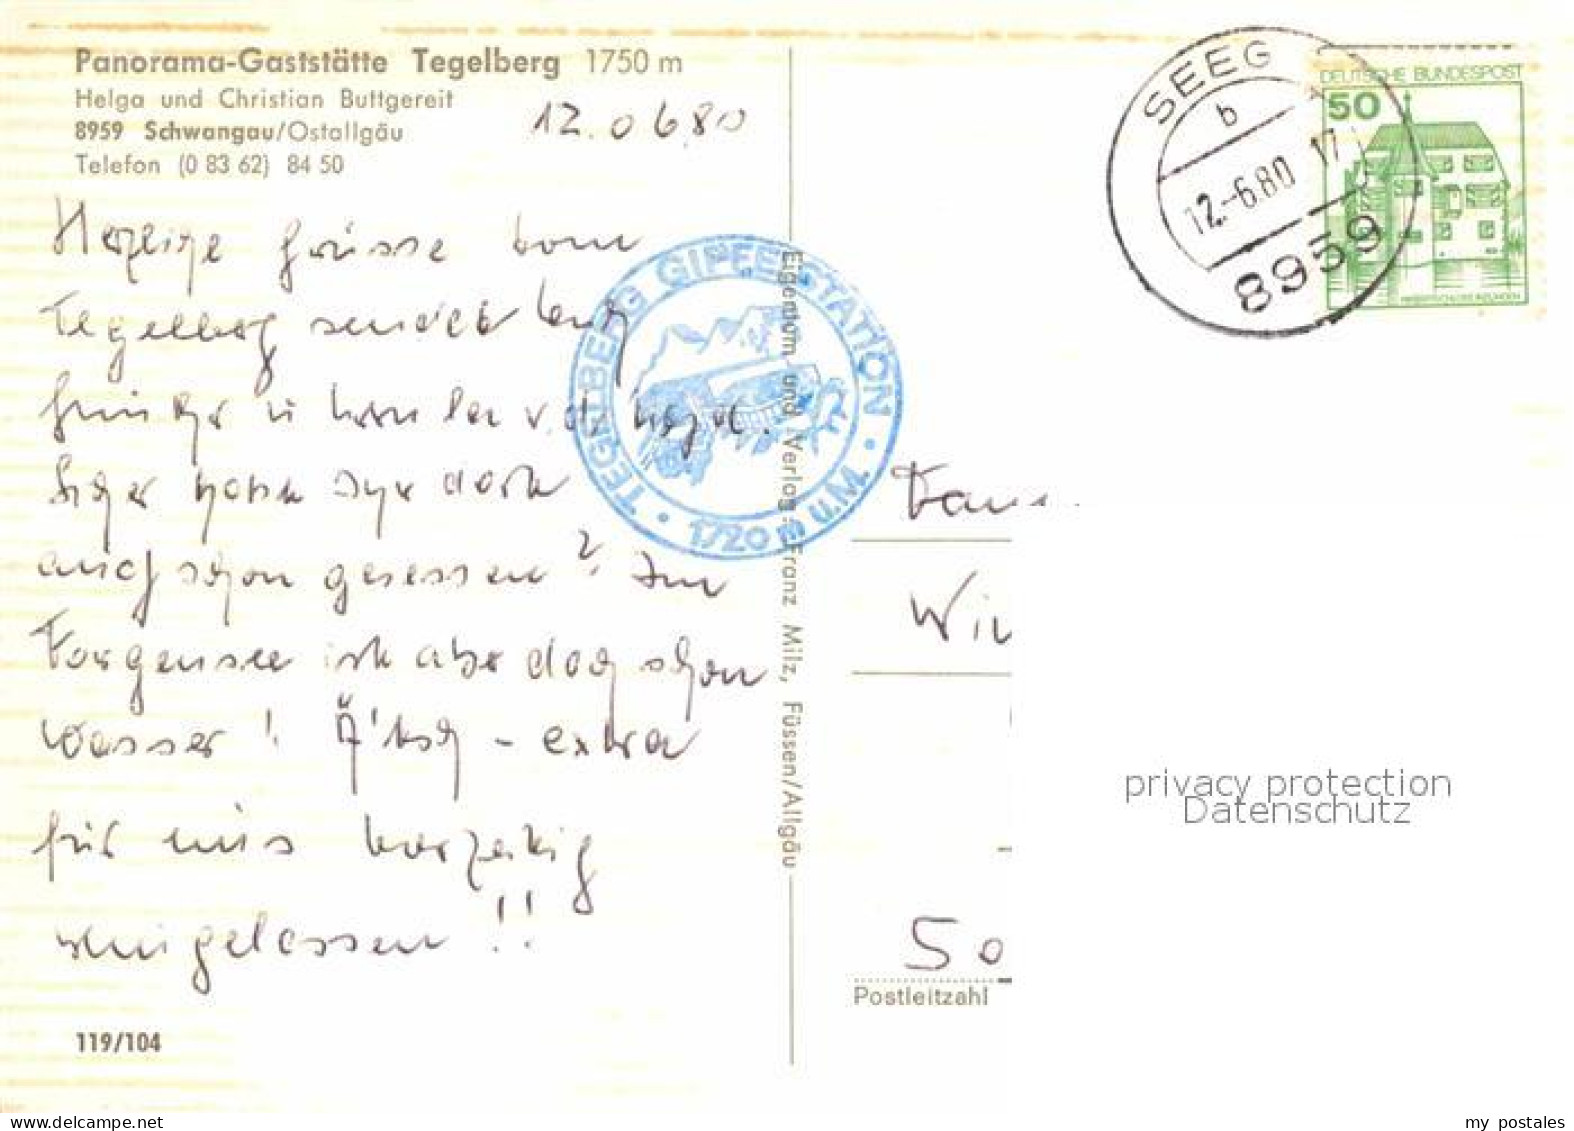 Panorama-Gaststätte Tegelberg 1750 m
Helga und Christian Buttgereit
8959 Schwangau/Ostallgäu
Telefon (0 83 62) 84 50
12.06.80
Herzliche Grüsse vom
Tegelberg sendet Euch
v.d.
auch schon gesessen? Im
Forgensee ist aber doch schon
Wasser! Ätsch - extra
für uns vorzeitig
eingelassen!!
119/104
TEGELBERG GIPFELSTATION
1720 m ü.M.
Eigentum und Verlag: Franz Milz, Füssen/Allgäu
SEEG
b
12.-6.80 17
8959
DEUTSCHE BUNDESPOST
50
WASSERSCHLOSS INZLINGEN
Fam
Wi
50
Postleitzahl
privacy protection
Datenschutz
www.delcampe.net
my postales